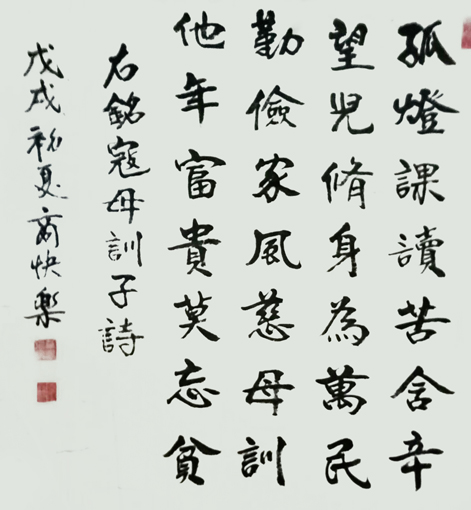 孤燈課讀苦含辛
望兒脩身為萬民
勤儉家風慈母訓
他年富貴莫忘貧
右銘寇母訓子詩
戊戌初夏高快樂